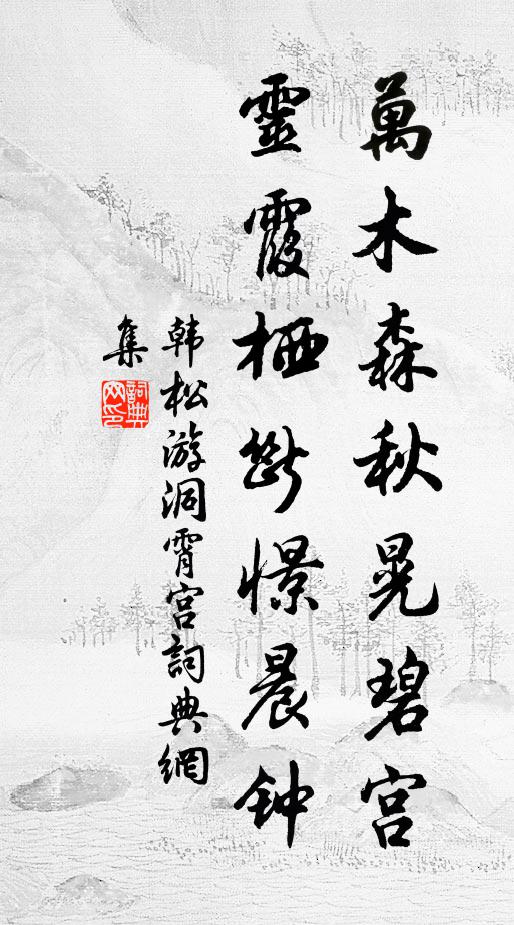 萬木森秋晃碧宮
靈霞栖斷憬晨钟
韩松游洞霄宮詞典網
集
詞典
网印